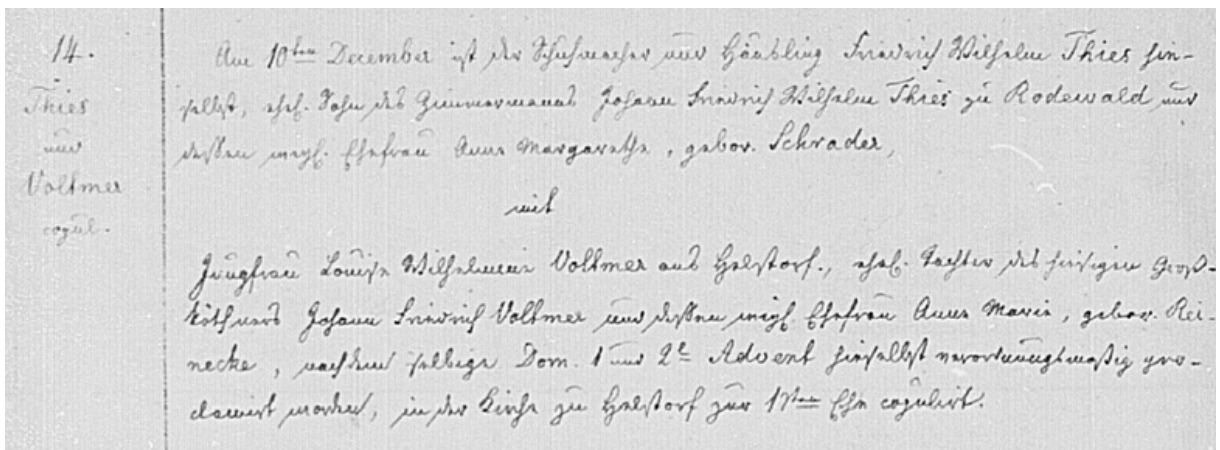 14.
Thies
und
Volkmer
copul.
Am 10ten December ist der Schuhmacher und Häusling Friedrich Wilhelm Thies hie-
selbst, ehel. Sohn des Zimmermanns Johann Friedrich Wilhelm Thies zu Rodewald und
dessen weyl. Ehefrau Anne Margarethe, gebor. Schrader,
mit
Jungfrau Louise Wilhelmine Volkmer aus Helstorf., ehel. Tochter des hiesigen Groß-
köthners Johann Friedrich Volkmer und dessen weyl. Ehefrau Anne Marie, gebor. Rei-
necke, nachdem selbige Dom. 1 und 2t Advent hieselbst verordnungsmäßig pro-
clamirt worden, in der Kirche zu Helstorf zur 1sten Ehe copulirt.